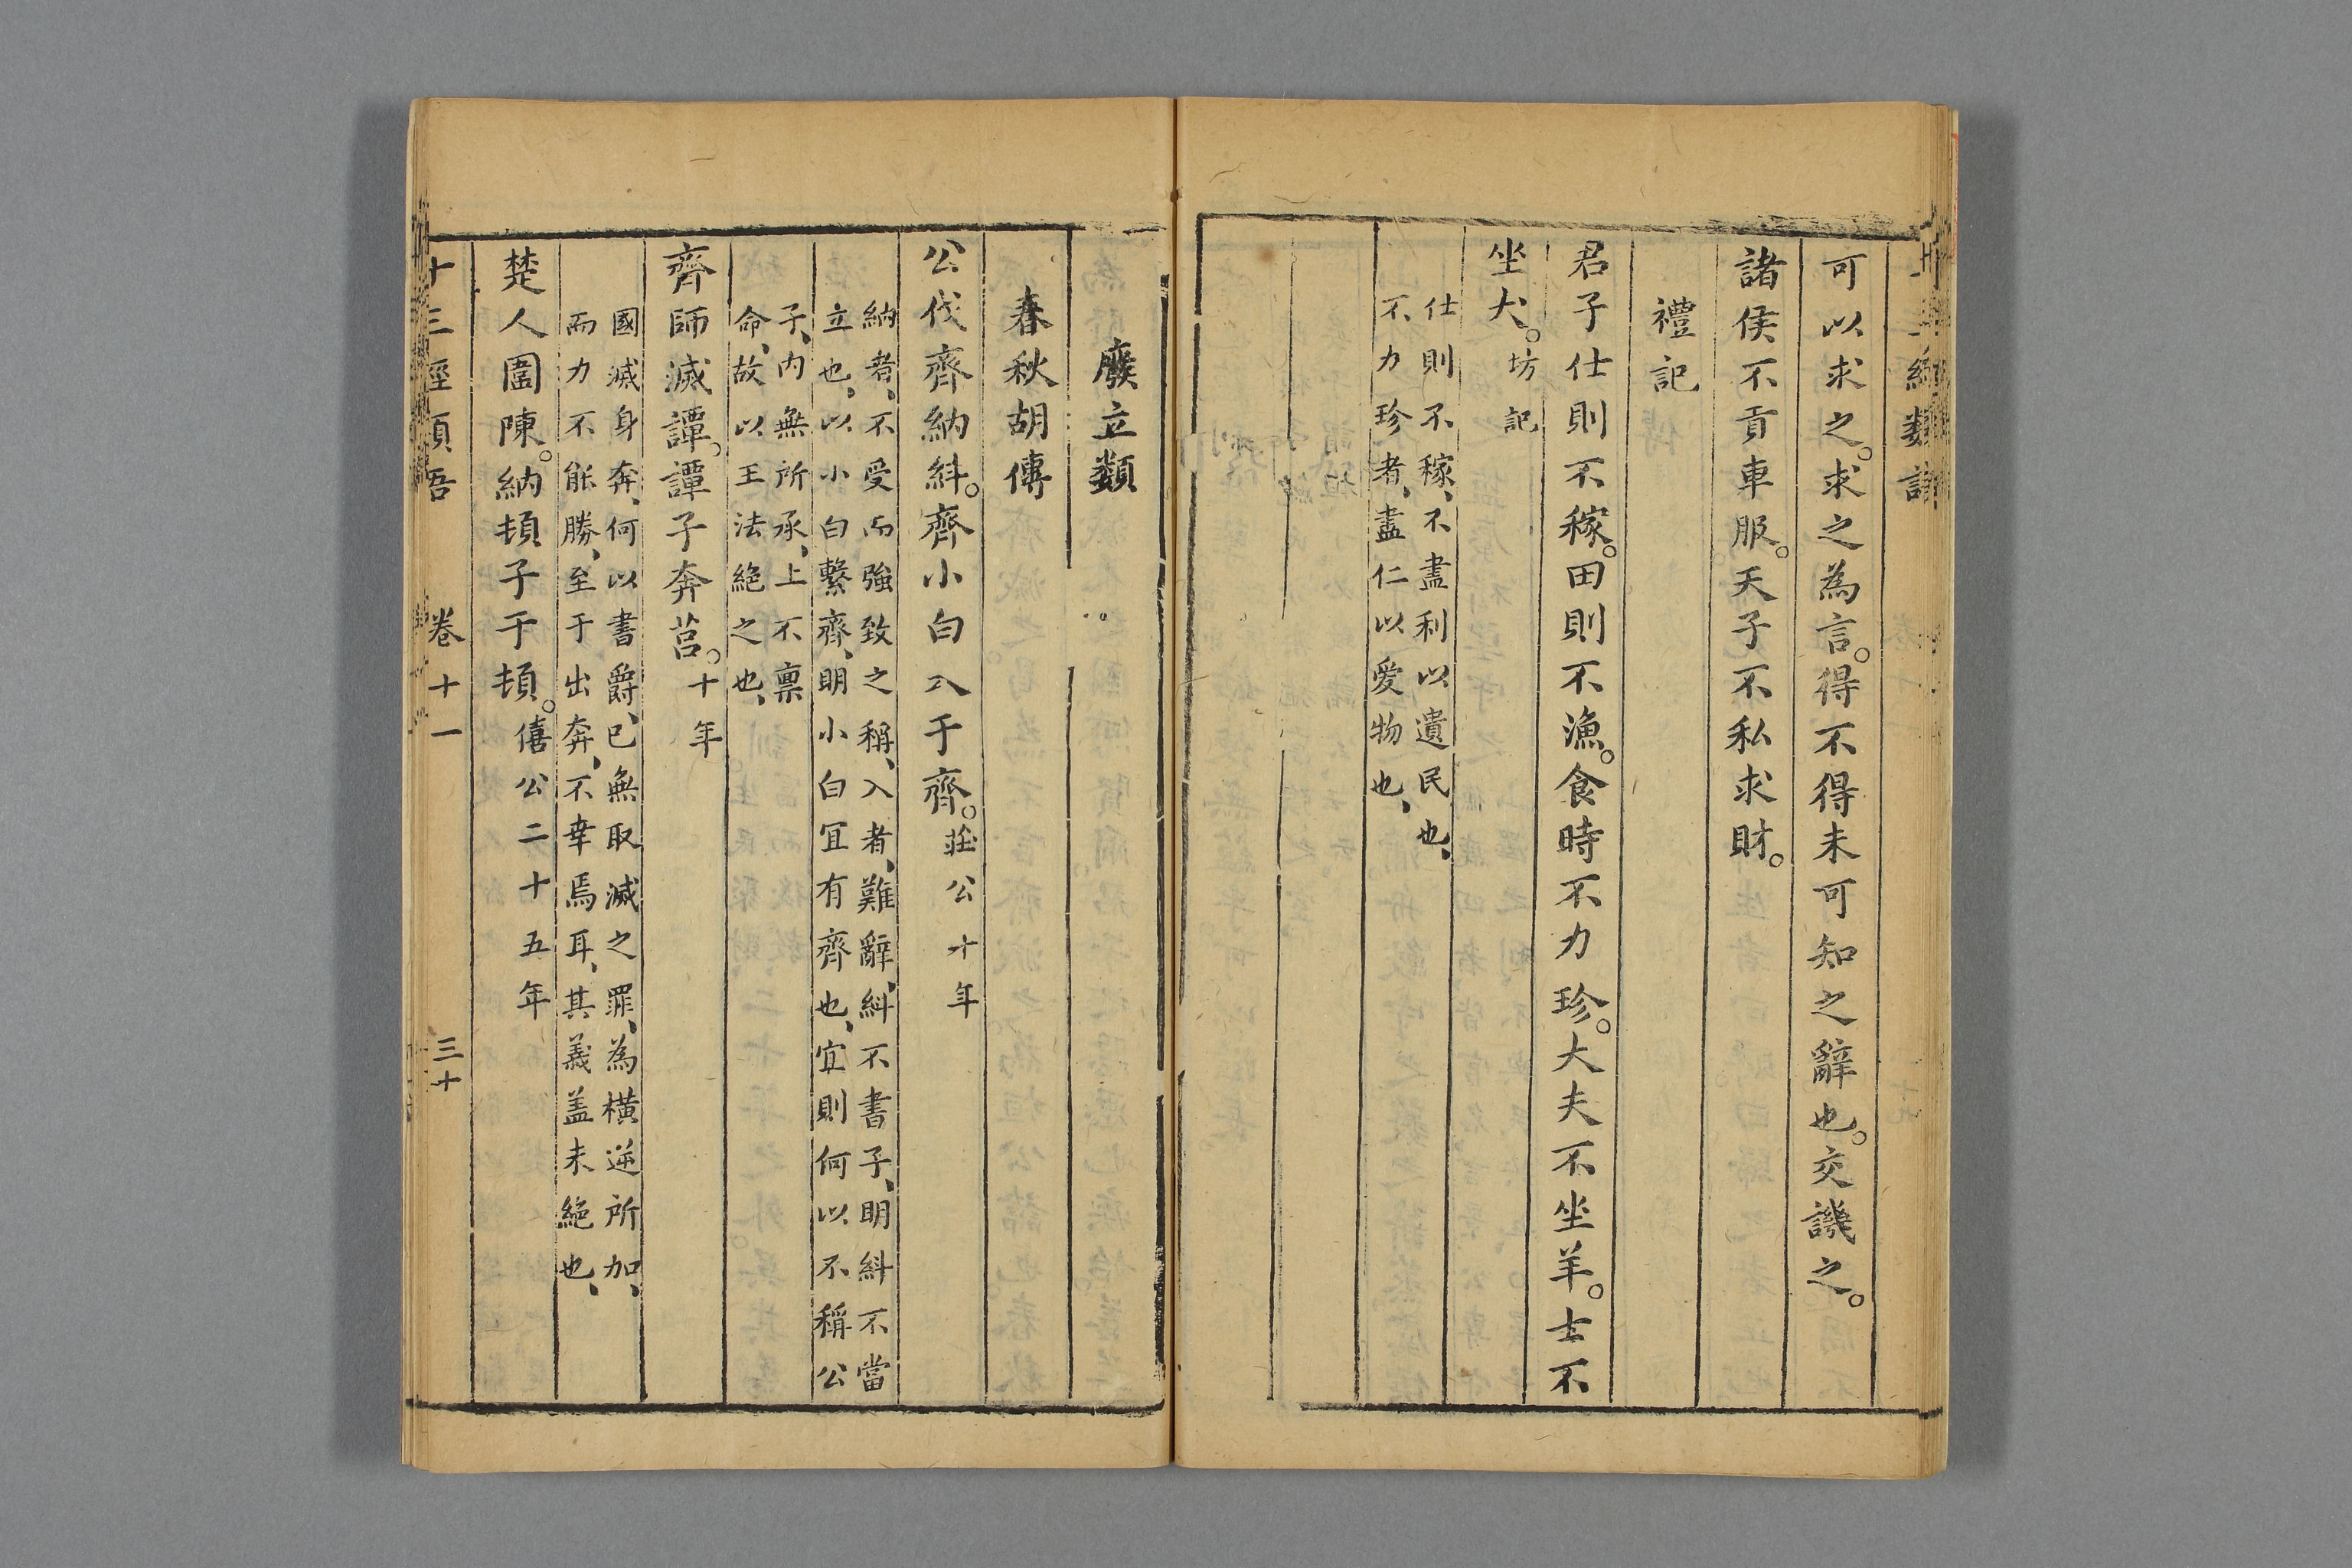 可以求之。求之為言。得不得未可知之辭也。交譏之。
諸侯不貢車服。天子不私求財。
禮記
君子仕則不稼。田則不漁。食時不力珍。大夫不坐羊。士不
坐犬。坊記
仕則不稼、不盡利以遺民也、
不力珍者、盡仁以愛物也、
廢立類
春秋胡傳
公伐齊納糾。齊小白入于齊。莊公十年
納者、不受而強致之稱、入者、難辭、糾不書子、明糾不當
立也、以小白繫齊、明小白宜有齊也、宜則何以不稱公
子、内無所承、上不禀
命、故以王法絕之也、
齊師滅譚。譚子奔莒。十年
國滅身奔、何以書爵、已無取滅之罪、為橫逆所加、
而力不能勝、至于出奔、不幸焉耳、其義盖未絕也、
楚人圍陳。納頓子于頓。僖公二十五年
十三經 卷十一 三十